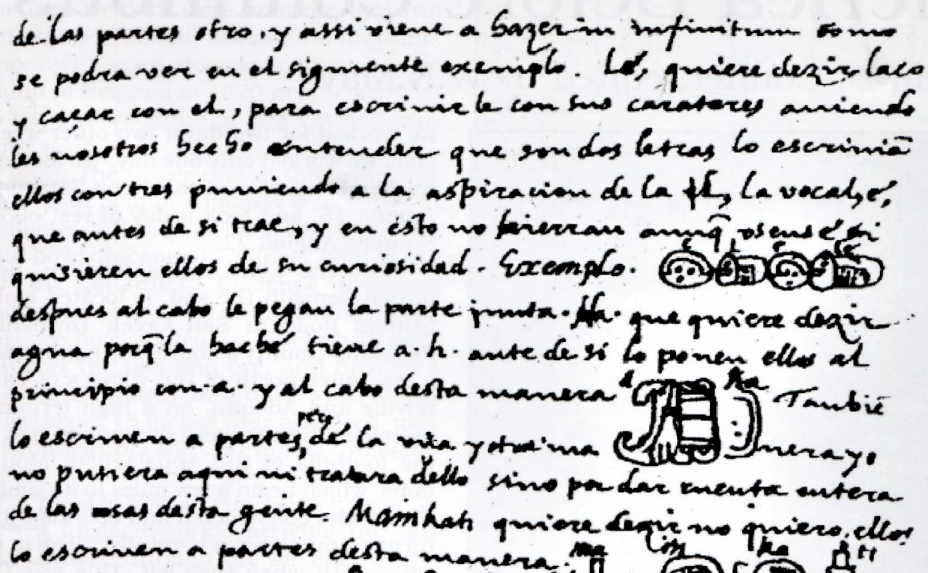 de las partes otro, y assi viene a hazer in infinitum como
se podra ver en el siguiente exemplo. Le, quiere dezir laço
y caçar con el, para escriuirle con sus carateres auiendo
les nosotros hecho entender que son dos letras lo escriuiã
ellos con tres puniendo a la aspiracion de la l, la vocal, é,
que antes de si trae, y en esto no hierran aunq̃ usense si
quisieren ellos de su curiosidad. Exemplo. e l e le
despues al cabo le pegan la parte junta. Ha. que quiere dezir
agua porq̃ la hache tiene a.h. ante de si lo ponen ellos al
principio con.a. y al cabo desta manera a ha Tambiẽ
lo escriuen a partes, pero de la una y otra ma nera yo
no pusiera aqui ni tratara dello sino por dar cuenta entera
de las cosas desta gente. Mamkati quiere dezir no quiero, ellos
lo escriuen a partes desta manera. ma in ka ti